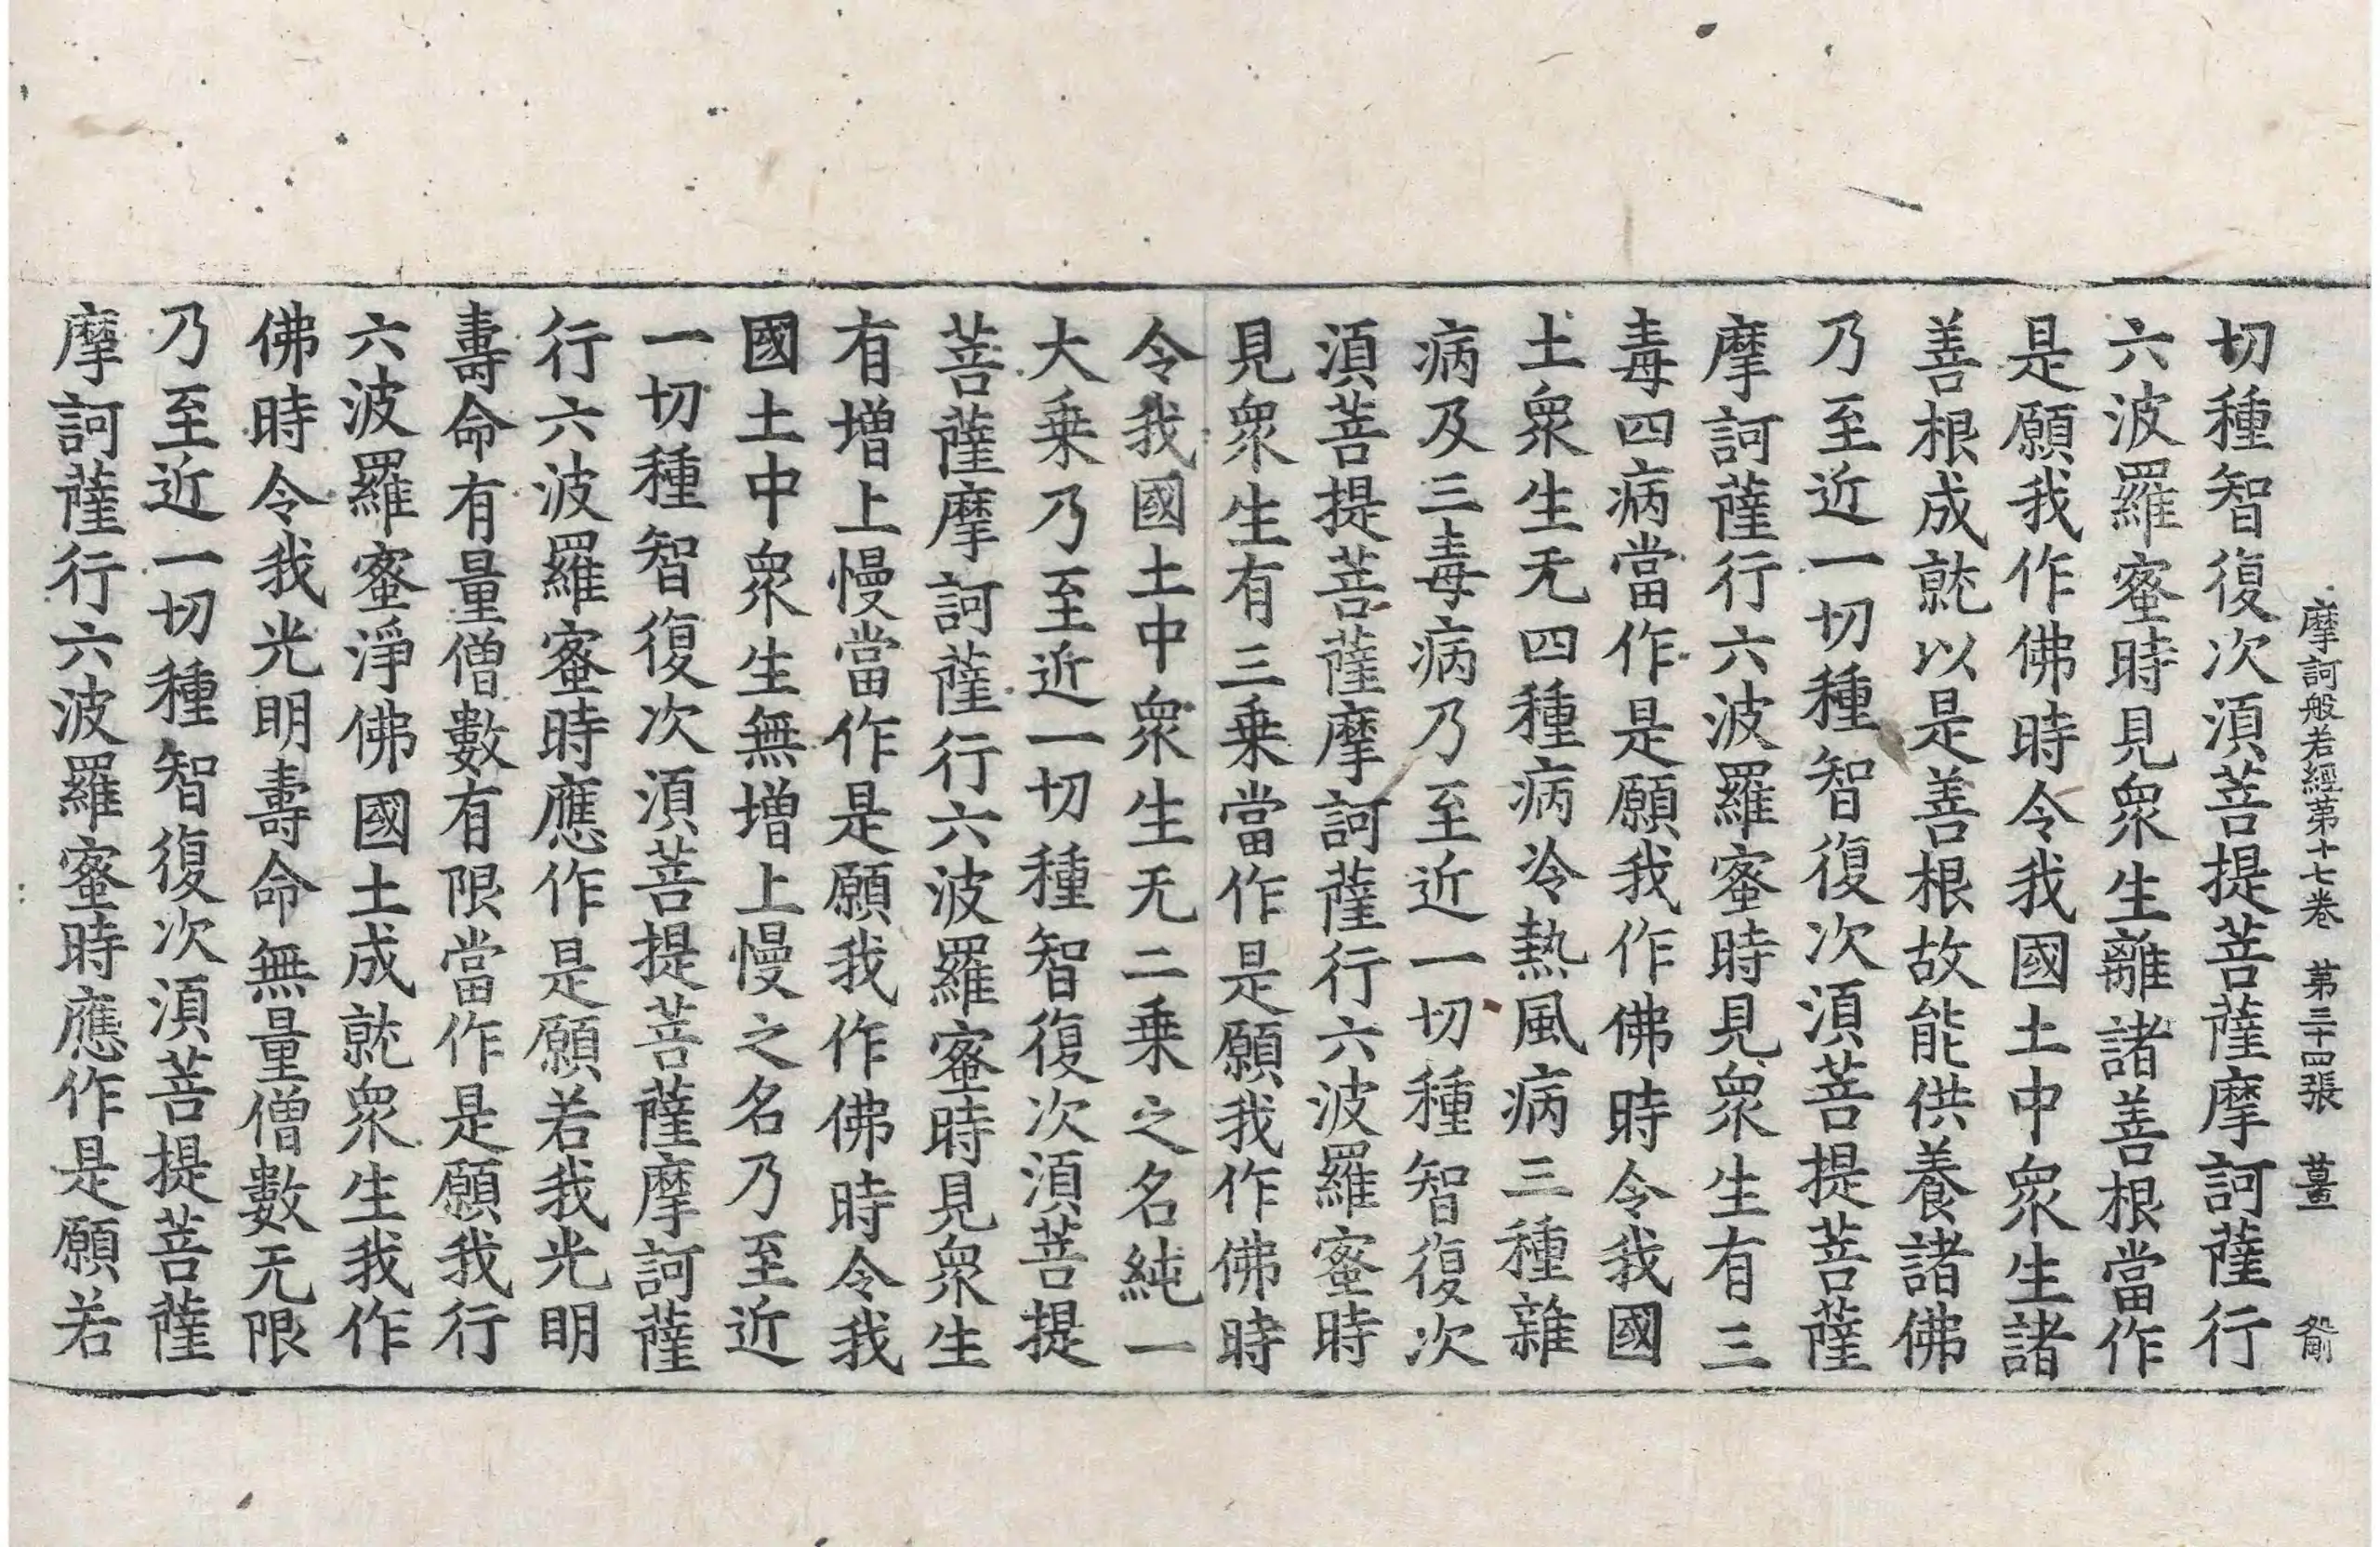 摩訶般若經第十七卷 第三十四張 薑
切種智復次湏菩提菩薩摩訶薩行
六波羅蜜時見眾生離諸善根當作
是願我作佛時令我國土中眾生諸
善根成就以是善根故能供養諸佛
乃至近一切種智復次湏菩提菩薩
摩訶薩行六波羅蜜時見眾生有三
毒四病當作是願我作佛時令我國
土眾生无四種病冷熱風病三種雜
病及三毒病乃至近一切種智復次
湏菩提菩薩摩訶薩行六波羅蜜時
見眾生有三乗當作是願我作佛時
令我國土中眾生无二乗之名純一
大乗乃至近一切種智復次湏菩提
菩薩摩訶薩行六波羅蜜時見眾生
有增上慢當作是願我作佛時令我
國土中眾生無增上慢之名乃至近
一切種智復次湏菩提菩薩摩訶薩
行六波羅蜜時應作是願若我光明
壽命有量僧數有限當作是願我行
六波羅蜜淨佛國土成就眾生我作
佛時令我光明壽命無量僧數无限
乃至近一切種智復次湏菩提菩薩
摩訶薩行六波羅蜜時應作是願若